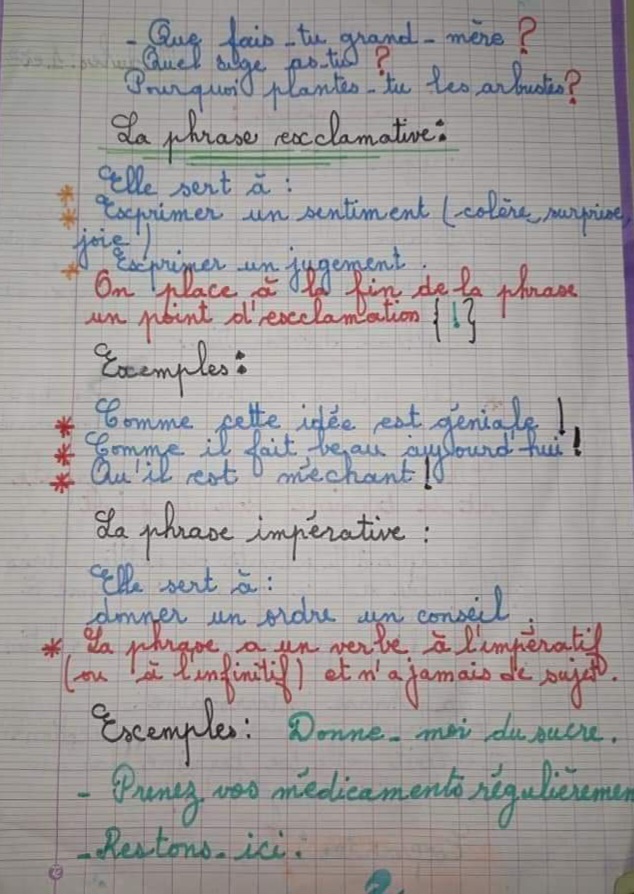 - Que fais-tu grand-mère ?
Quel âge as-tu ?
Pourquoi plantes-tu les arbustes?
La phrase exclamative:
Elle sert à :
* Exprimer un sentiment (colère, surprise,
joie)
* Exprimer un jugement.
On place à la fin de la phrase
un point d'exclamation {!}
Exemples:
* Comme cette idée est géniale !
* Comme il fait beau aujourd'hui !
* Qu'il est méchant !
La phrase impérative :
Elle sert à :
donner un ordre un conseil.
* La phrase a un verbe à l'impératif
(ou à l'infinitif) et n'a jamais de sujet.
Exemples: Donne-moi du sucre.
- Prenez vos médicaments régulièremen
- Restons-ici.